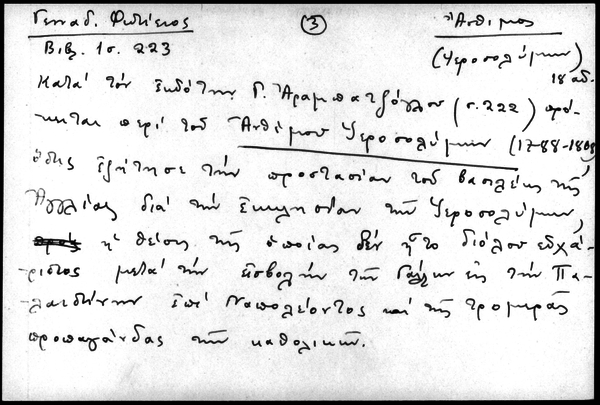 Γενναδ. Φωτίειος ③ Ἄνθιμος
Βιβ. 1 σ. 223 (Ἱεροσολύμων)
18 αἰ.
Κατά τόν ἐκδότην Γ. Ἀραμπατζόγλου (σ. 222) πρό-
κειται περί τοῦ Ἀνθίμου Ἱεροσολύμων (1788-1808)
ὅστις ἐζήτησε τήν προστασίαν τοῦ βασιλέως τῆς
Ἀγγλίας διά τήν ἐκκλησίαν τῶν Ἱεροσολύμων,
ἡ θέσις τῆς ὁποίας δέν ἦτο διόλου εὐχά-
ριστος μετά τήν εἰσβολήν τῶν Γάλλων εἰς τήν Πα-
λαιστίνην ἐπί Ναπολέοντος καί τῆς τρομερᾶς
προπαγάνδας τῶν καθολικῶν.